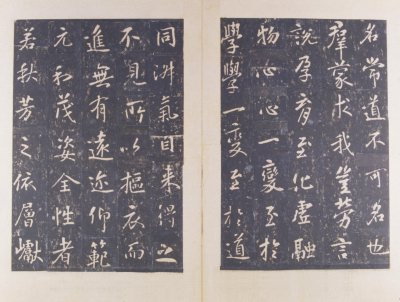 名常道不可名也
羣蒙求我豈勞言
說孕育至化虛融
物心心一變至於
學學一變至於道
同氣自來得之
不見所以摳衣而
進無有遠近仰範
元和茂姿全性者
若秋芳之依層巘